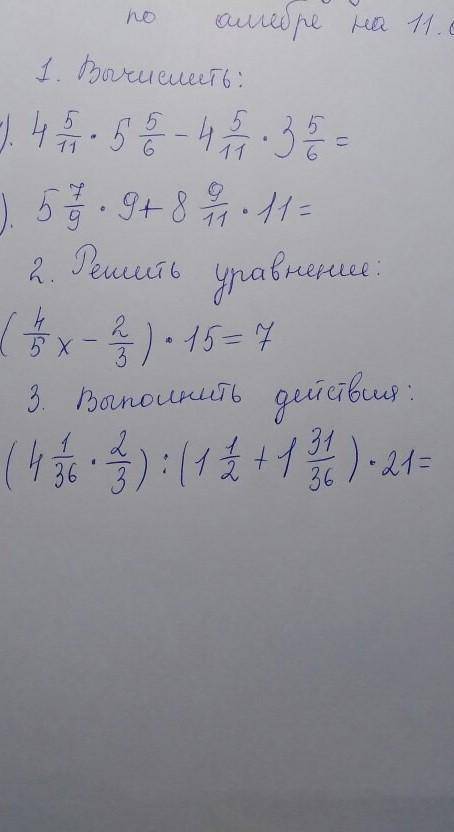 по алгебре на 11.
1. Вычислить:
). 4 5/11 · 5 5/6 - 4 5/11 · 3 5/6 =
). 5 7/9 · 9 + 8 9/11 · 11 =
2. Решить уравнение:
(4/5 x - 2/3) · 15 = 7
3. Выполнить действия:
(4 1/36 · 2/3) : (1 1/2 + 1 31/36) · 21 =